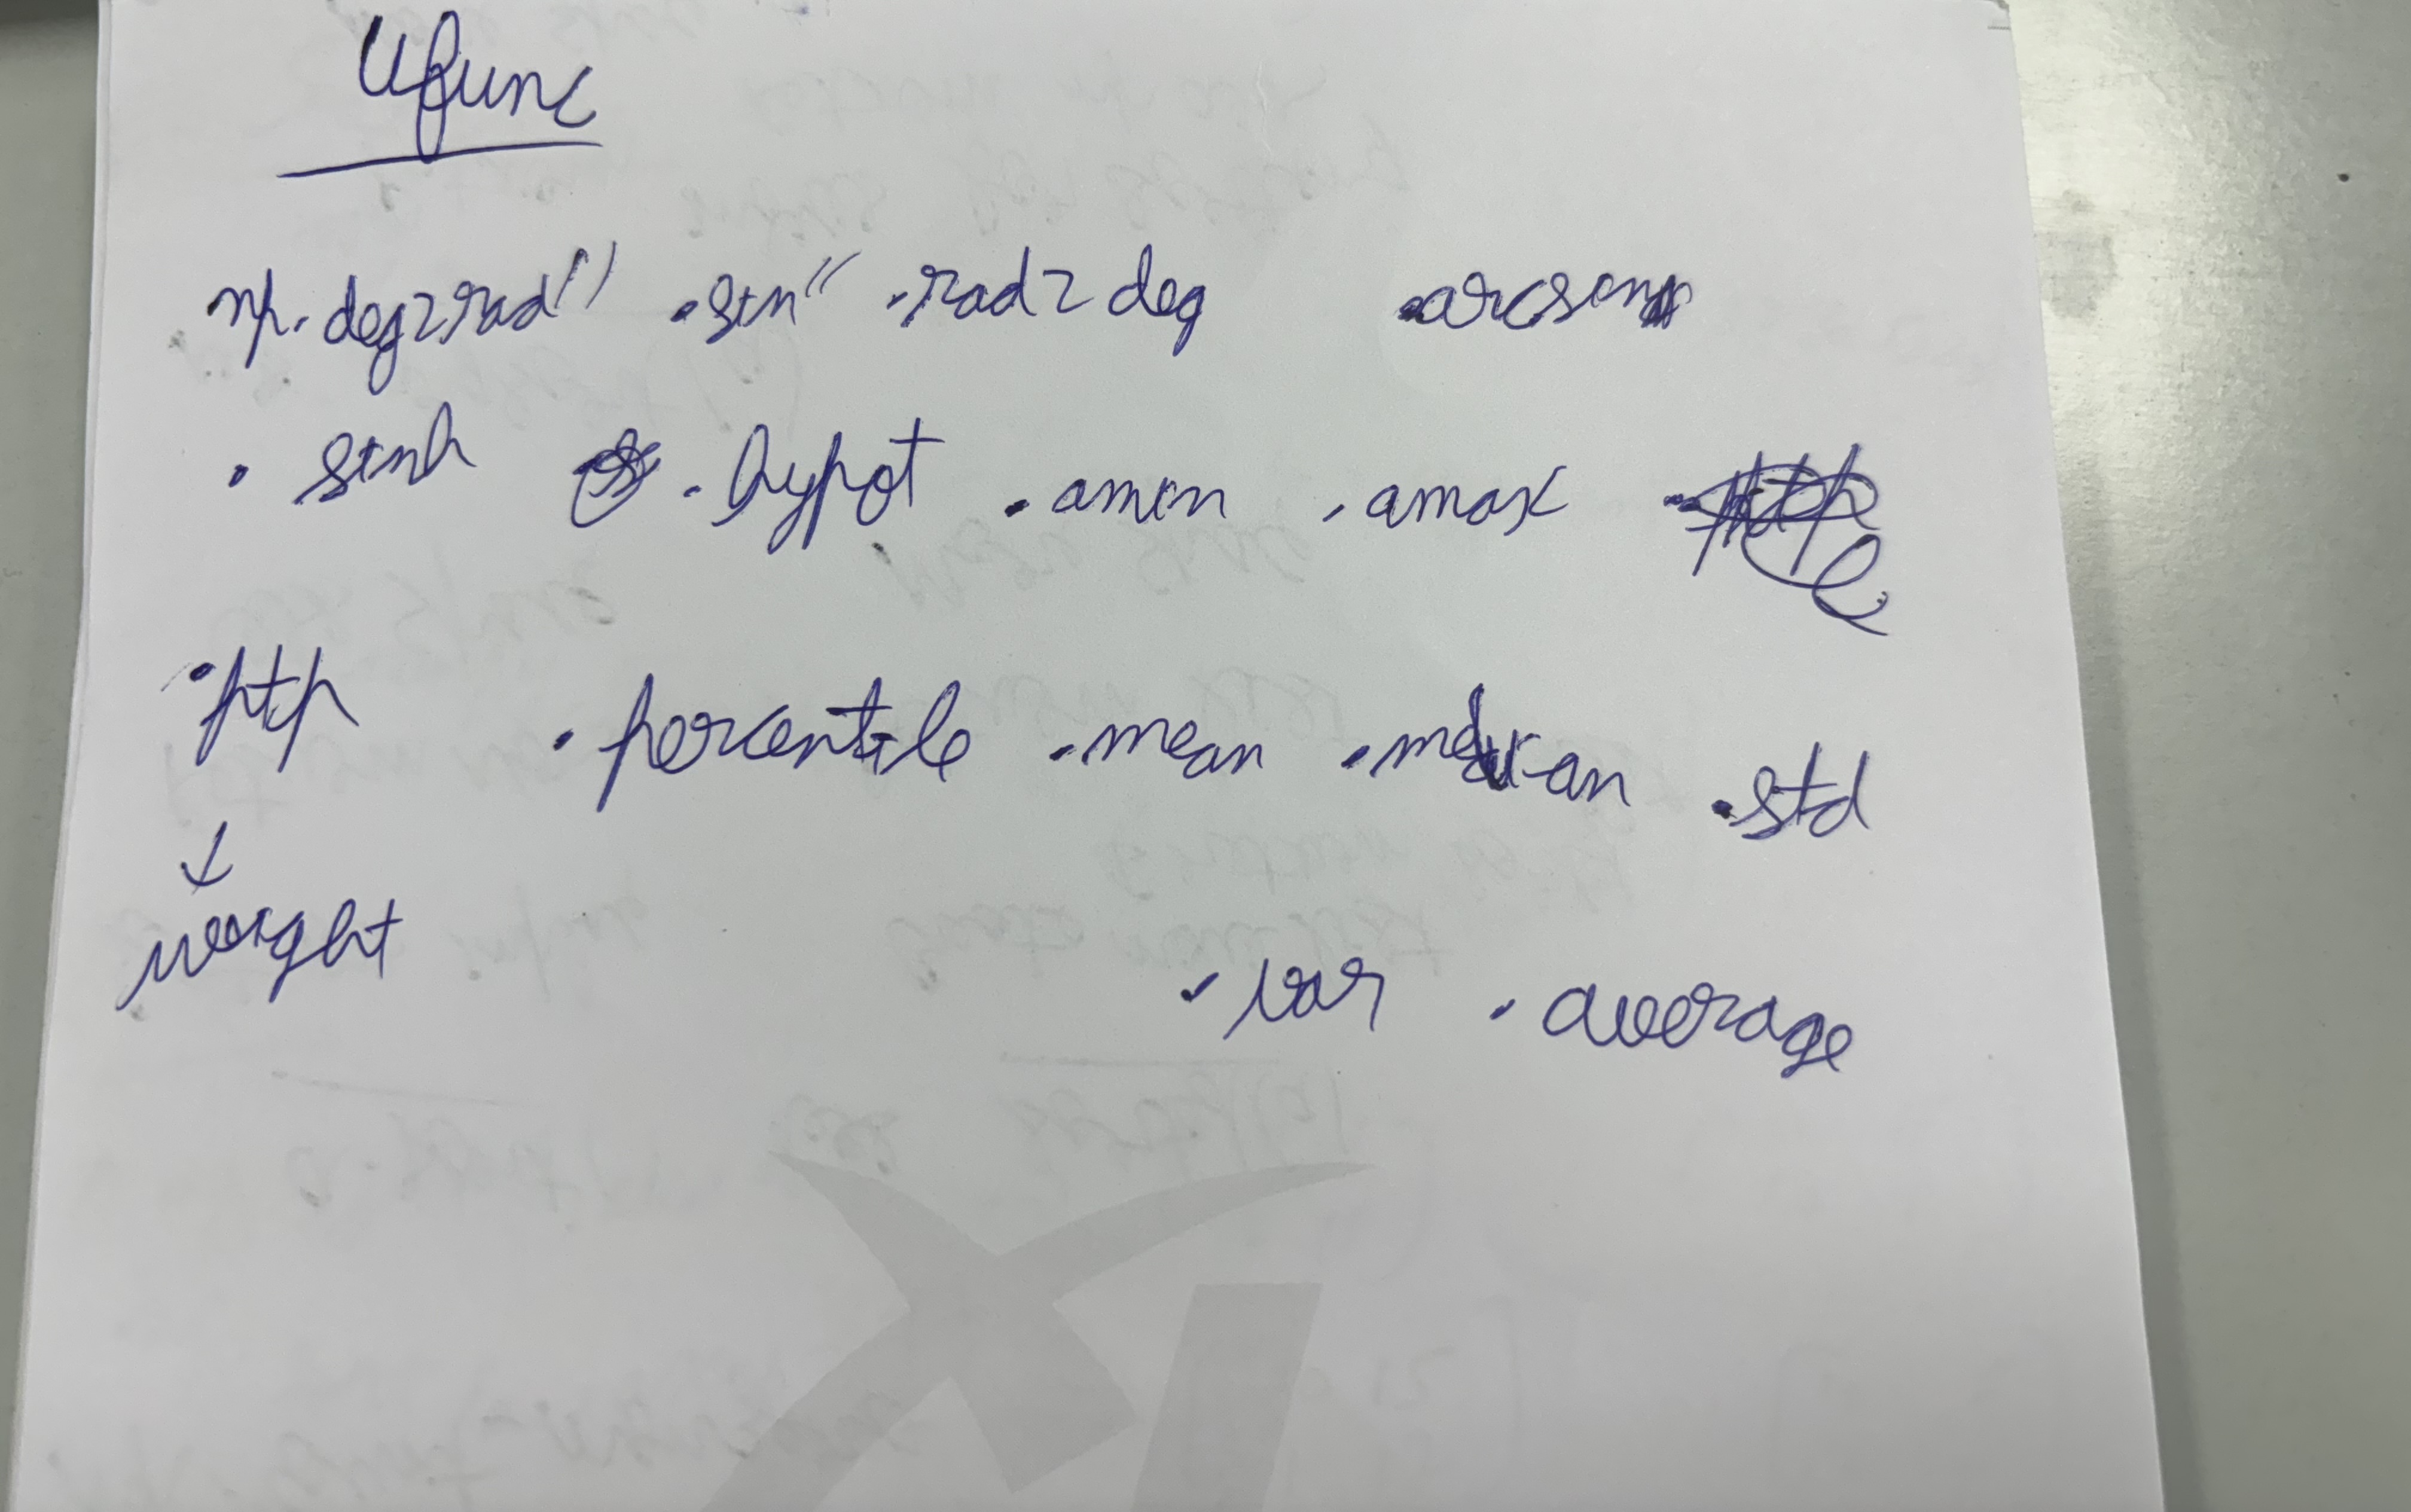 Ufunc
np. deg2rad() .sin" .rad2deg .arcsin
. sinh . hypot . amin . amax
.ptp . percentile .mean .median .std
↓
weight
. var . average